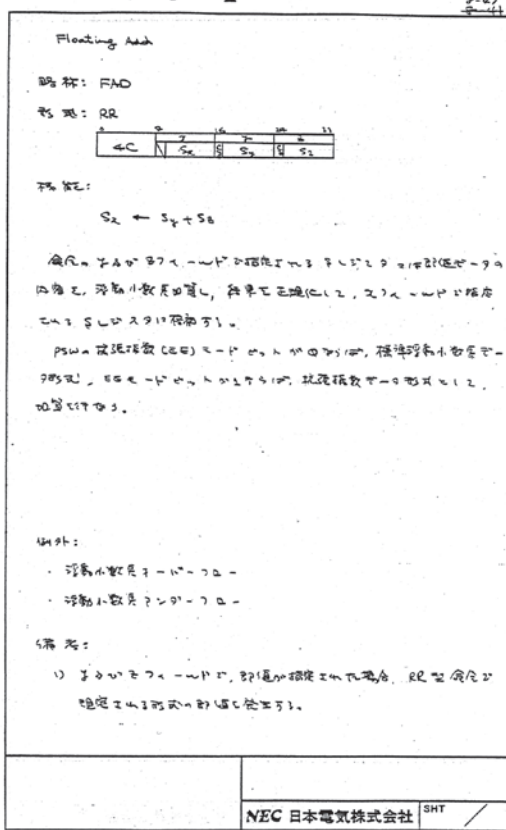 Floating Add
略称: FAD
形式: RR
0 8 16 24 31
7 7 7
4C Sx Sy Sz
機能:
Sx ← Sy + Sz
命令のyおよびzフィールドで指定されるSレジスタ又は即値データの
内容を、浮動小数点加算し、結果を正規化して、xフィールドで指定
されるSレジスタに格納する。
PSWの拡張指数(EE)モードビットが0ならば、標準浮動小数点デー
タ形式、EEモードビットが1ならば、拡張指数データ形式として、
加算を行なう。
例外:
・浮動小数点オーバーフロー
・浮動小数点アンダーフロー
備考:
1) yおよびzフィールドで、即値が指定された場合、RR型命令で
規定される形式の即値を発生する。
NEC 日本電気株式会社 SHT